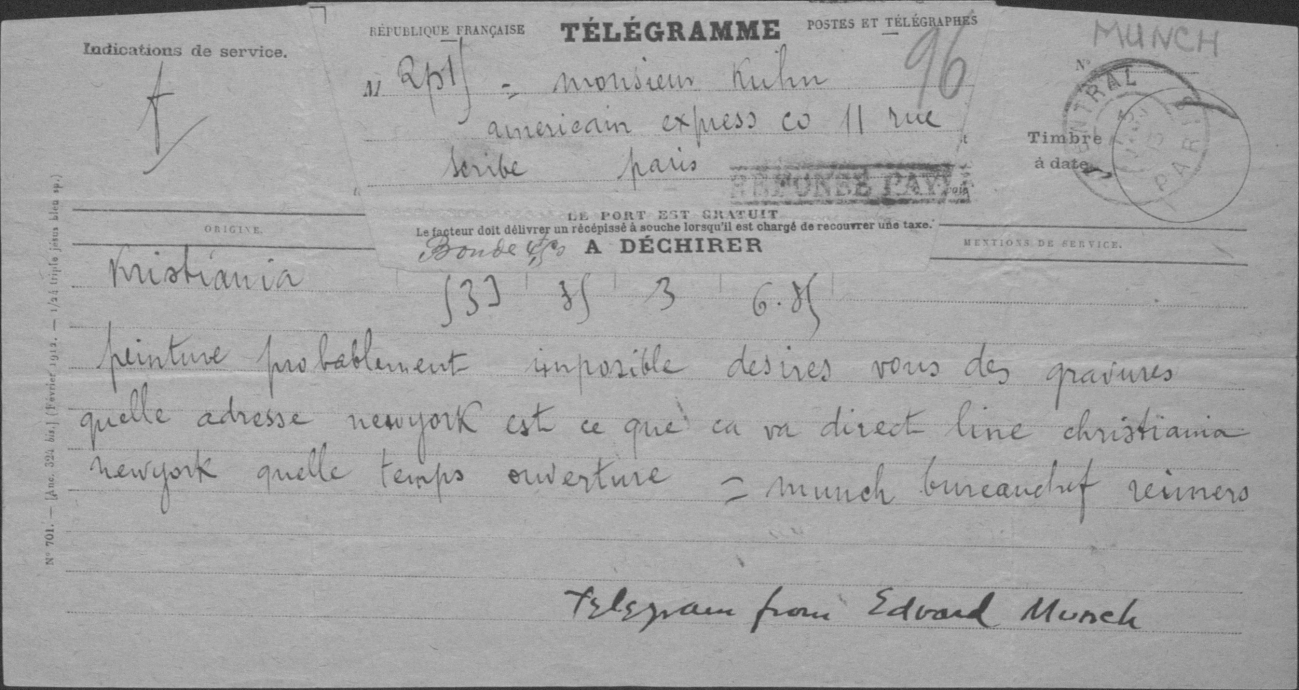 MUNCH
RÉPUBLIQUE FRANÇAISE TÉLÉGRAMME POSTES ET TÉLÉGRAPHES
Indications de service.
96
N = monsieur Kuhn
americain express co 11 rue
scribe paris
RÉPONSE PAYÉE
Timbre
à date
CENTRAL
PARIS
LE PORT EST GRATUIT
Le facteur doit délivrer un récépissé à souche lorsqu'il est chargé de recouvrer une taxe.
A DÉCHIRER
ORIGINE.
MENTIONS DE SERVICE.
Kristiania
3 6.85
peinture probablement imposible desires vous des gravures
quelle adresse newyork est ce que ca va direct line christiania
newyork quelle temps ouverture = munch bureauchef reimers
Telegram from Edvard Munch
N° 701. — [Anc. 324 bis.] (Février 1912. — 1/24 triple jésus bleu sp.)